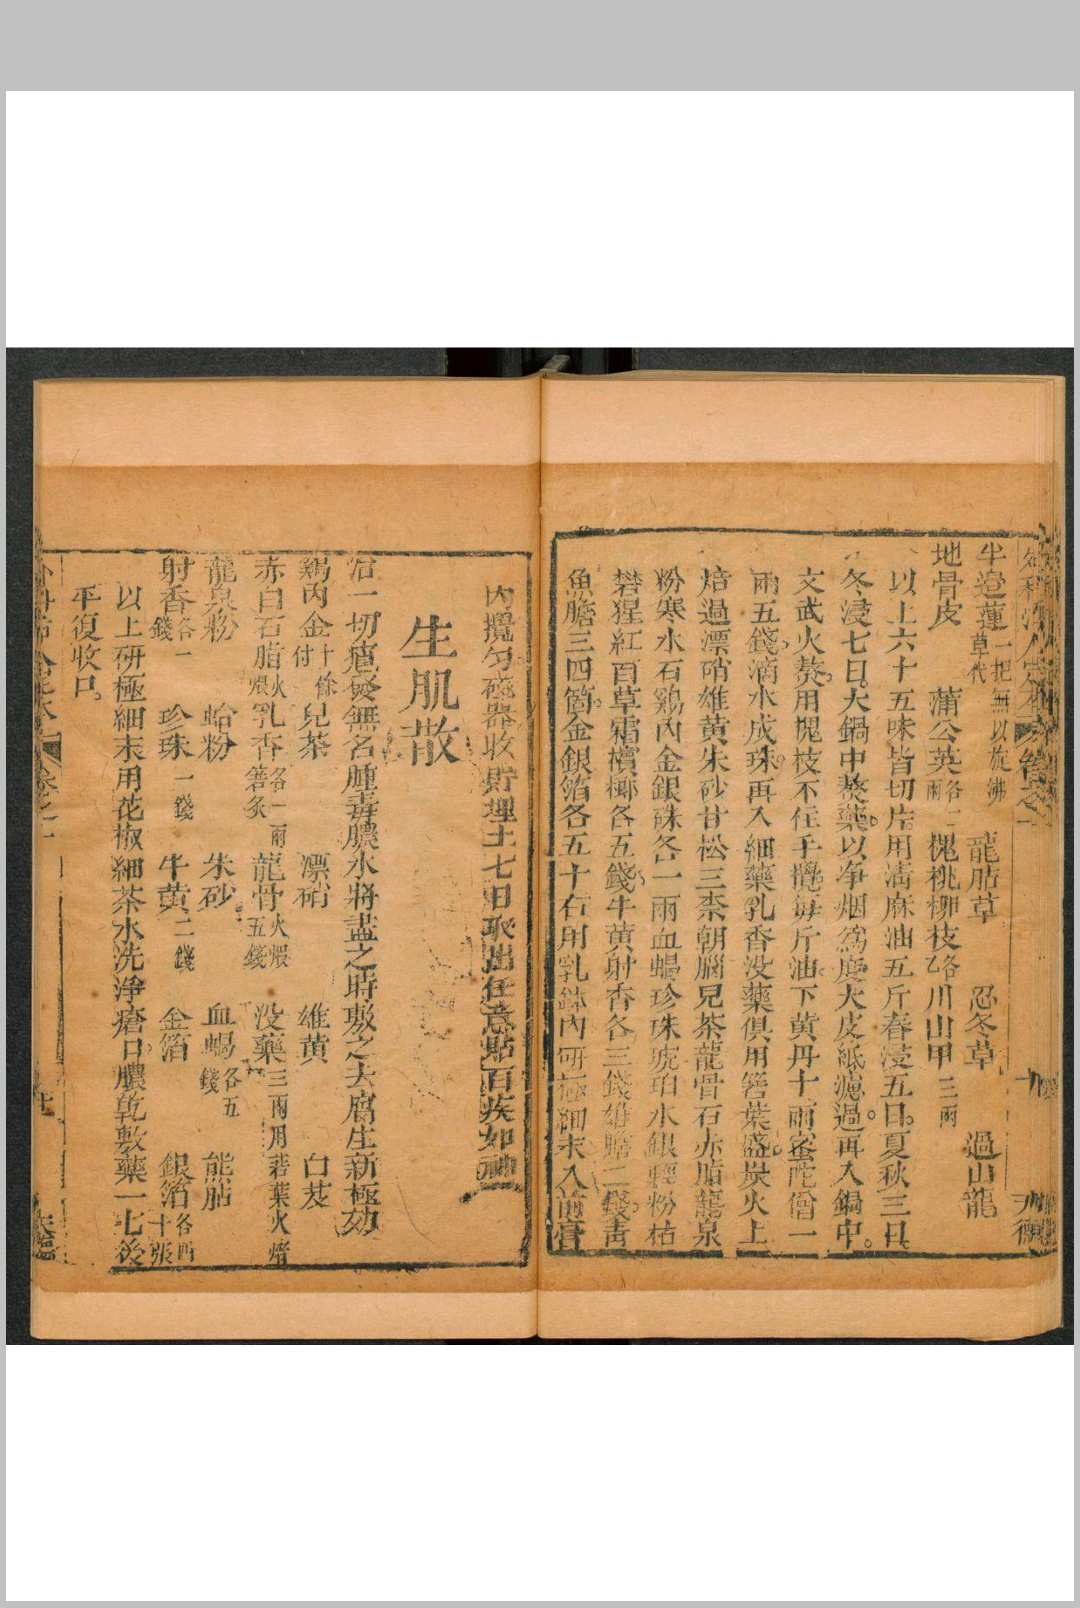 半邊蓮一把無以旋沸草代 龍胆草 忍冬草 過山龍
地骨皮 蒲公英各二兩 槐桃柳枝各 川山甲三兩
以上六十五味皆切片用清麻油五斤春浸五日夏秋三日
冬浸七日大鍋中熬藥以净烟爲度大皮紙濾過再入鍋中
文武火熬用槐枝不住手攪每斤油下黄丹十兩蜜陀僧一
兩五錢滴水成珠再入細藥乳香没藥俱用箬葉盛炭火上
焙過漂硝雄黄朱砂甘松三柰朝腦兒茶龍骨石赤脂龍泉
粉寒水石鷄內金銀硃各一兩血蝎珍珠琥珀水銀輕粉枯
礬猩紅百草霜檳榔各五錢牛黄射香各三錢雄膽二錢青
魚膽三四箇金銀箔各五十右用乳鉢內研極細末入前膏
內攪匀磁器收貯埋土七日取出任意貼百疾如神
生肌散
治一切瘡發無名腫毒膿水將盡之時敷之去腐生新極効
鷄內金十餘付 兒茶 漂硝 雄黄 白芨
赤白石脂火煨 乳香各二兩箬炙 龍骨火煨五錢 没藥三兩用箬葉火焙
龍泉粉 蛤粉 朱砂 血蝎各五錢 熊胆
射香各一錢 珍珠一錢 牛黄二錢 金箔 銀箔各四十張
以上研極細末用花椒細茶水洗淨瘡口膿乾敷藥一七後
平復收口